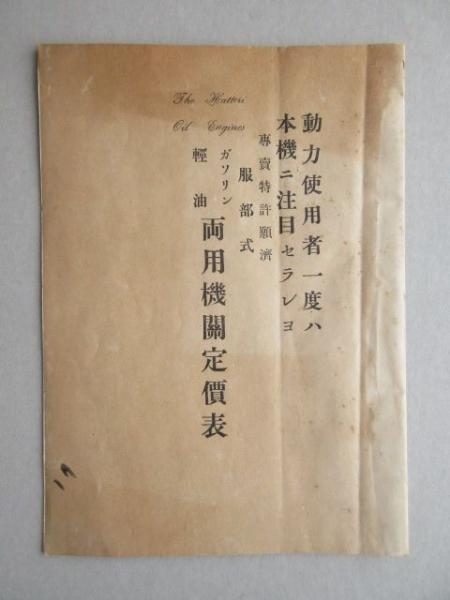 動力使用者一度ハ
本機ニ注目セラレヨ
專賣特許願濟
服部式
ガソリン
輕油
両用機關定價表
The Hattori
Oil Engines